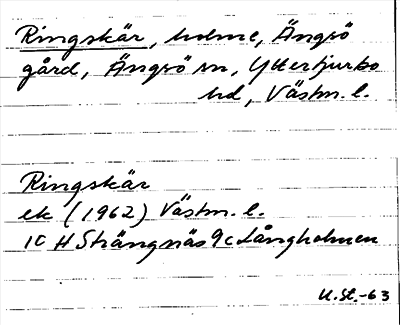 Ringskär, holme, Ängsö
gård, Ängsö sn, Yttertjurbo
hd, Västm. l.
Ringskär
ek (1962) Västm. l.
10 H Strängnäs 9c Långholmen
U.St.-63